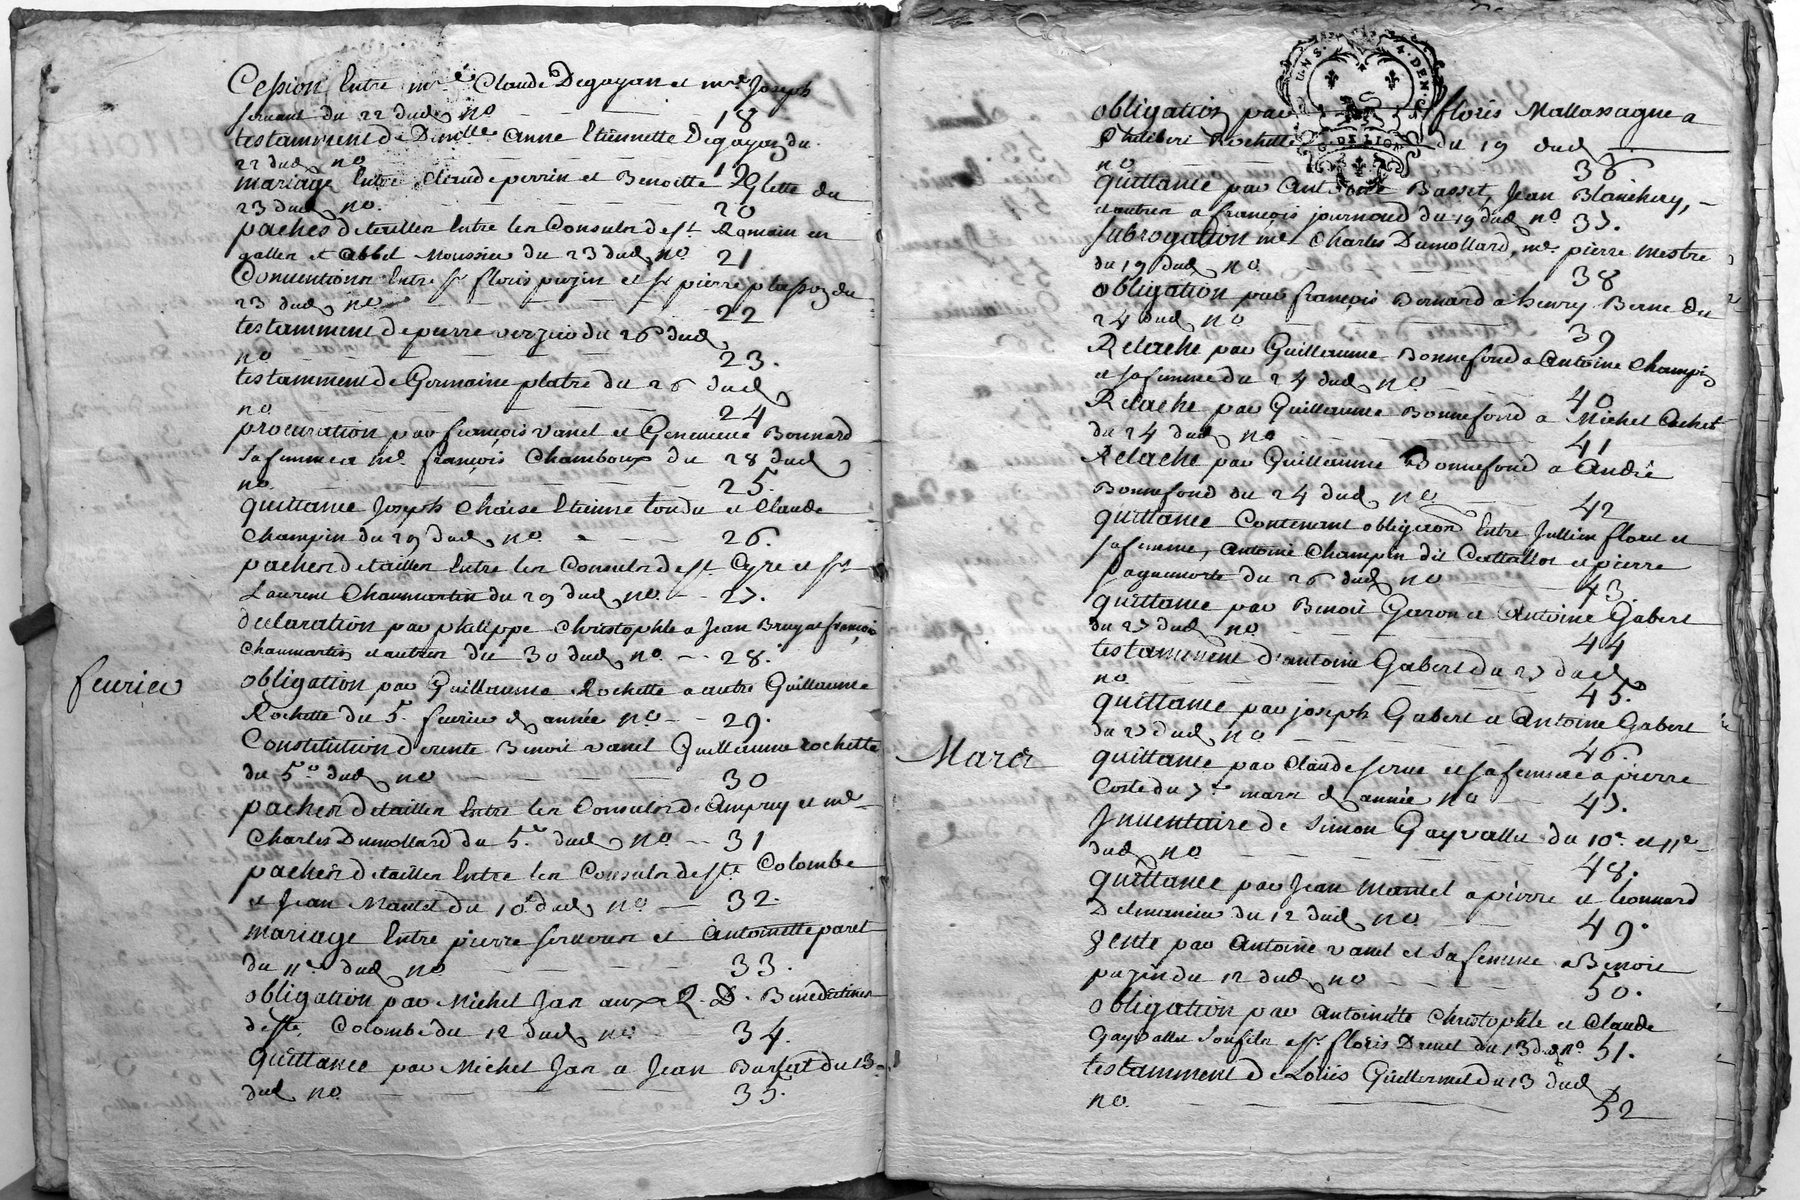 Cession Entre mre Claude Degayan et mre Joseph
servant du 22 dud no 18
testamment de Dmlle anne Etiennette Degayan du
22 dud no 19
mariage Entre claude perrin et Benoitte du
23 dud no. 20
paches detailler Entre les Consulr de st Romain en
gallen et abbel Moussier du 23 dud no 21
Conventions Entre sr floris puzin et sr pierre plasson du
23 dud no 22
testamment de pierre verzieu du 26 dud
no 23.
testamment de Germaine platre du 26 dud
no 24
procuration par françois vanel et Genevieve Bonnard
sa femme a me françois Chamboux du 28 dud
no 25.
quittance Joseph Chaise Etienne tondu et Claude
Champin du 29 dud no. 26.
pachen detailler Entre les Consulr de st Cyre et sr
Laurent Chaumartin du 29 dud no 27.
declaration par philippe Christophle a Jean Bruyat françois
Chaumartin et autres du 30 dud no. 28.
feurier
obligation par Guillaume Rochette a autre Guillaume
Rochette du 5. feurier d. année no 29.
Constitution de rente Benoit vanel Guillaume rochette
du 5o dud no 30
pachen detailler Entre les Consulr de Ampuy et me
Charles Dumollard du 5. dud no. 31
pachen detailler Entre les Consulr de ste Colombe
et Jean Mantel du 10e dud no 32.
mariage Entre pierre serveren et Antoinette paret
du 11e dud no 33.
obligation par Michel Jan aux R. D. Benedictines
de ste Colombe du 12 dud no. 34.
quittance par Michel Jan a Jean du 13
dud no. 35.
GNS. 4. DEN.
G. DE LION
obligation par floris Mallassagne a
Philibert Rochette du 19 dud
no 36
quittance par Antoine Basset, Jean Blanchery,
et autres a françois journoud du 19 dud no 37.
subrogation me Charles Dumollard, me pierre mestre
du 19 dud no 38
obligation par françois Bernard a henry Berne du
24 dud no 39
Relache par Guillaume Bonnefond a Antoine Champin
et sa femme du 24 dud no 40
Relache par Guillaume Bonnefond a Michel Cachet
du 24 dud no 41
Relache par Guillaume Bonnefond a André
Bonnefond du 24 dud no. 42
quittance Contenant obligaon Entre Jullien florel et
sa femme, antoine Champin dit et pierre
paquemorte du 26 dud no 43.
quittance par Benoit Garon a Antoine Gabert
du 27 dud no 44
testamment d'antoine Gabert du 27 dud
no 45.
quittance par joseph Gabert a Antoine Gabert
du 27 dud no 46.
Mars
quittance par Claude serve et sa femme a pierre
Coste du 7e mars d. année no 47.
Inventaire de simon Gayvallet du 10e et 11e
dud no 48.
quittance par Jean Mantel a pierre et Leonnard
du 12 dud no 49.
vente par Antoine vanel et sa femme a Benoit
puzin du 12 dud no 50.
obligation par Antoinette Christophle et Claude
Gayvallet son fils a sr floris Drevet du 13 d. no 51.
testamment de Loüis Guillermet du 13 dud
no. 52